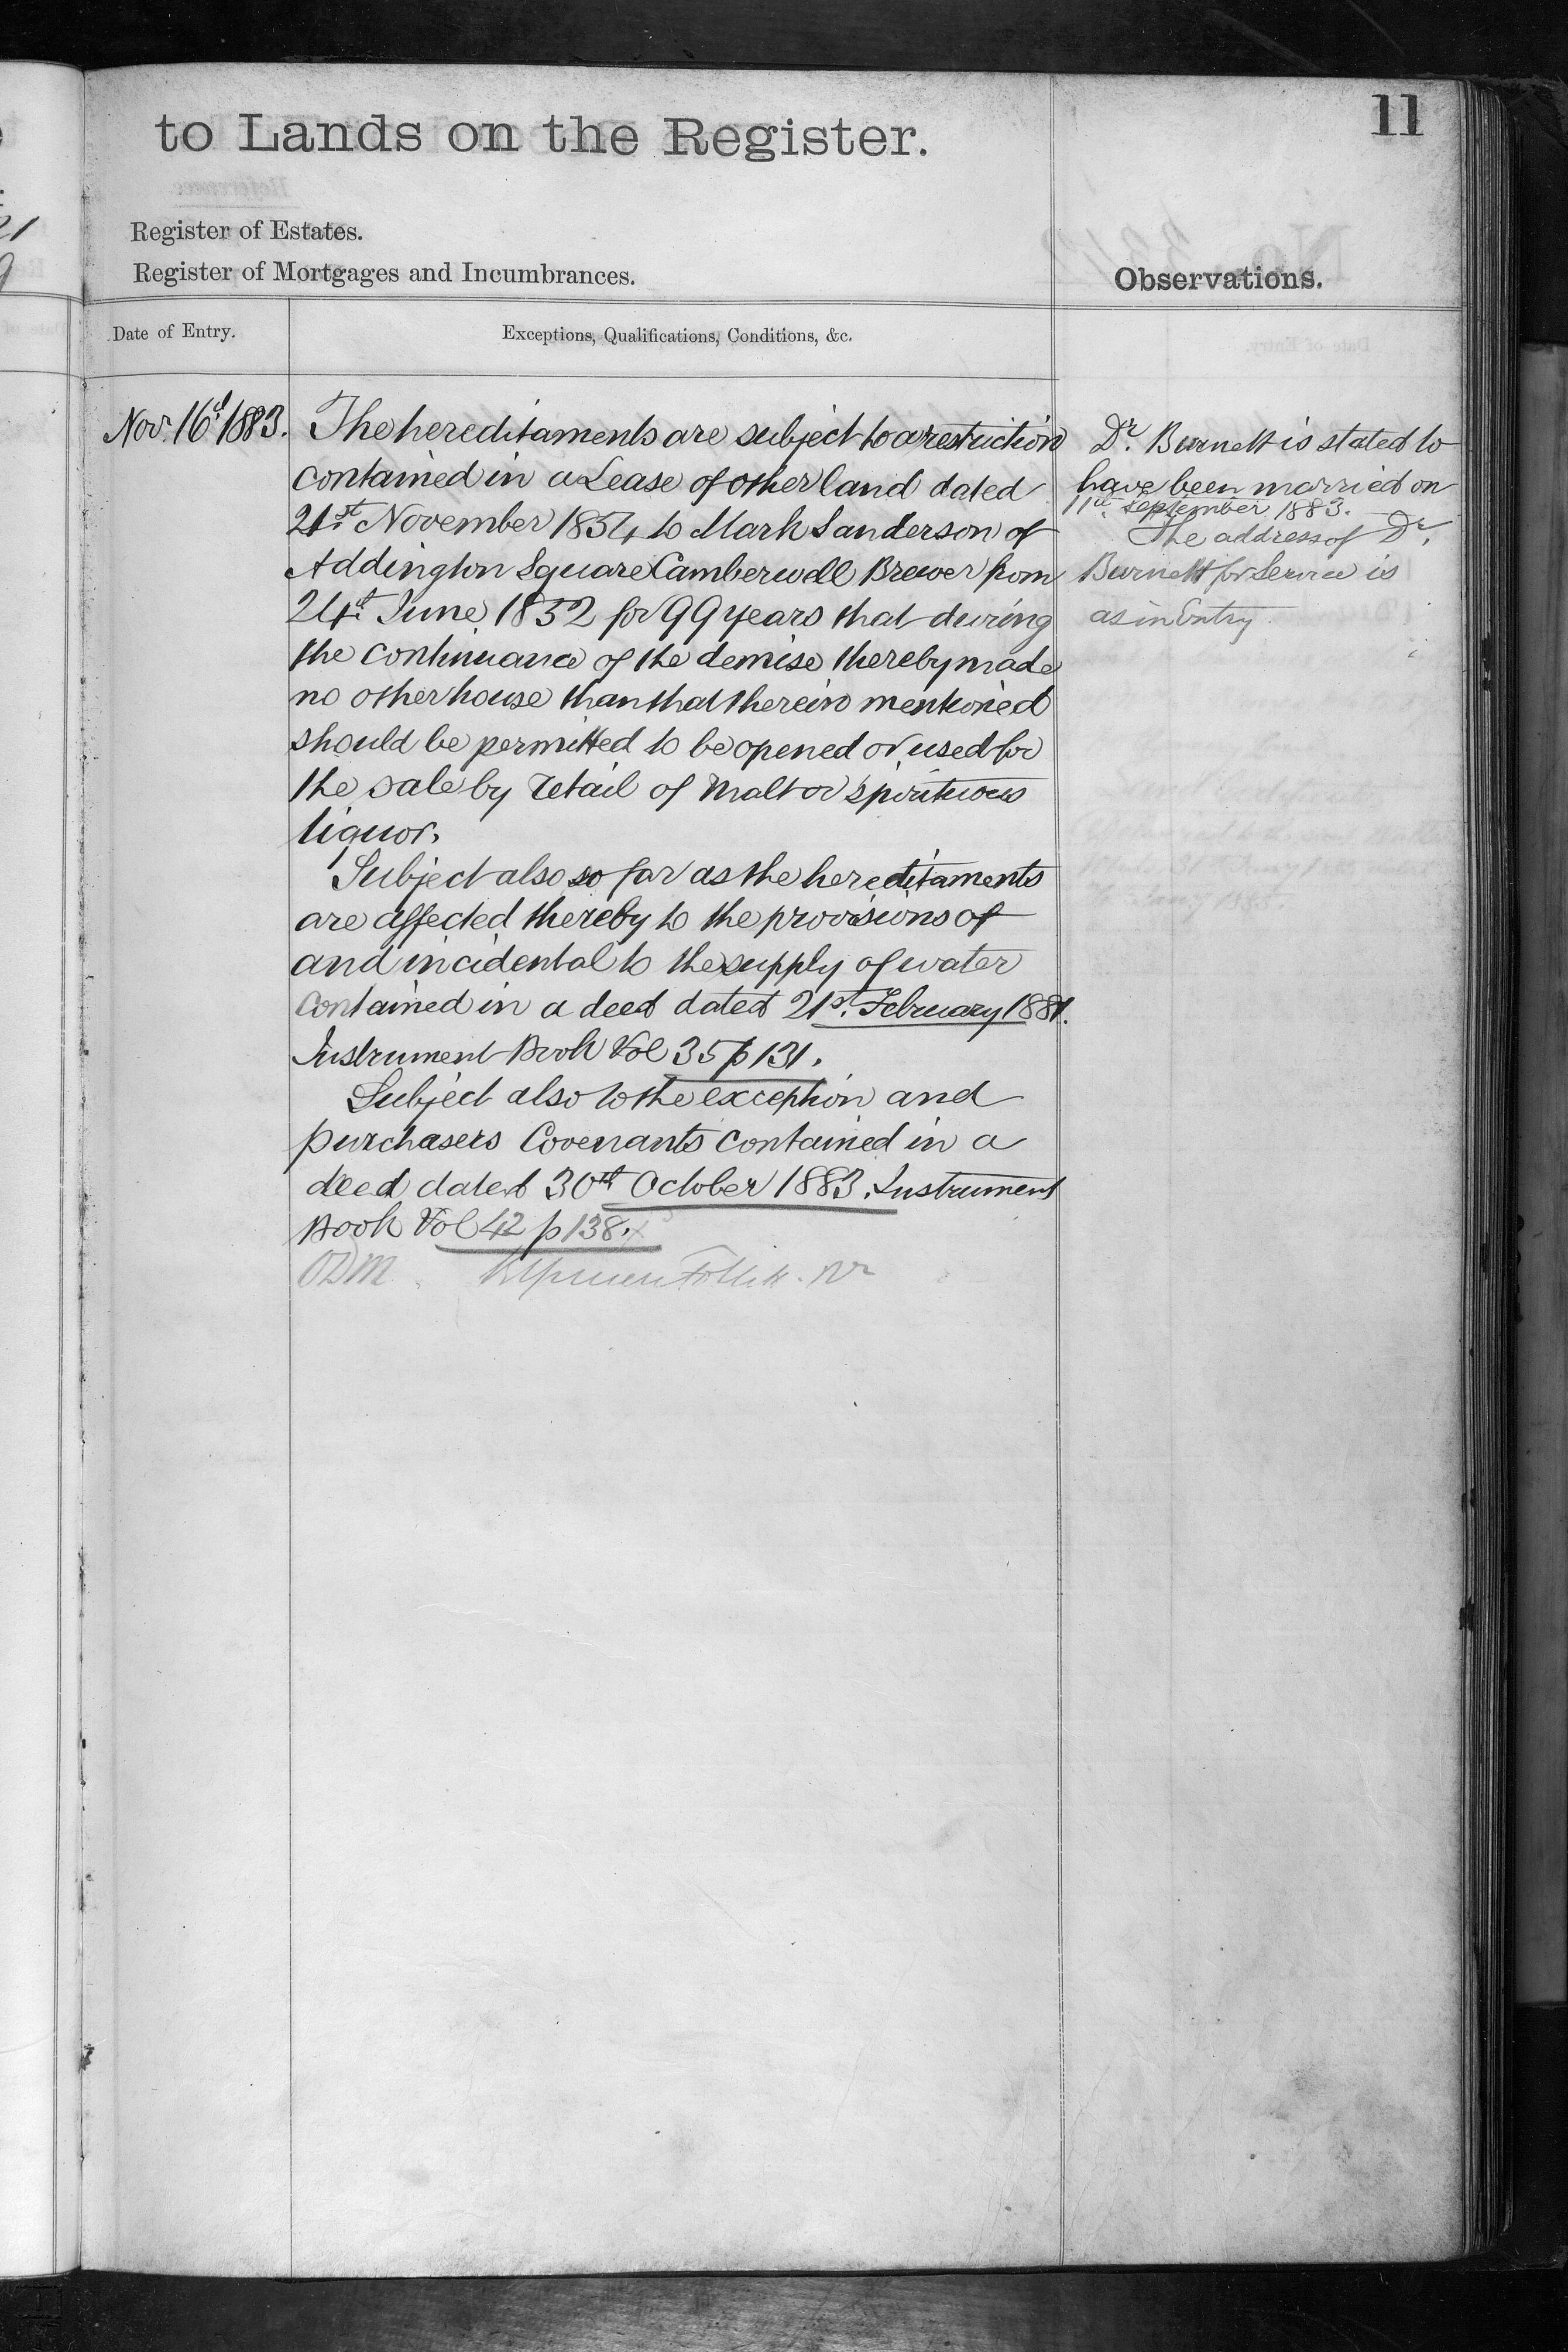 11
to Lands on the Register.
Register of Estates.
Register of Mortgages and Incumbrances.
Observations.
Date of Entry.
Exceptions, Qualifications, Conditions, &c.
Nov. 16th 1883.
The hereditaments are subject to a restriction
contained in a Lease of other land dated
21st November 1854 to Mark Sanderson of
Addington Square Camberwell Brewer from
24th June 1852 for 99 years that during
the continuance of the demise thereby made
no other house than that therein mentioned
should be permitted to be opened or used for
the sale by retail of Malt or spirituous
liquor.
Subject also so far as the hereditaments
are affected thereby to the provisions of
and incidental to the supply of water
contained in a deed dated 21st February 1881.
Instrument Book Vol 35 p 131.
Subject also to the exception and
purchasers Covenants contained in a
deed dated 30th October 1883. Instrument
Book Vol 42 p 138.
Dr. Burnett is stated to
have been married on
11th September 1883.
The address of Dr.
Burnett for Service is
as in Entry